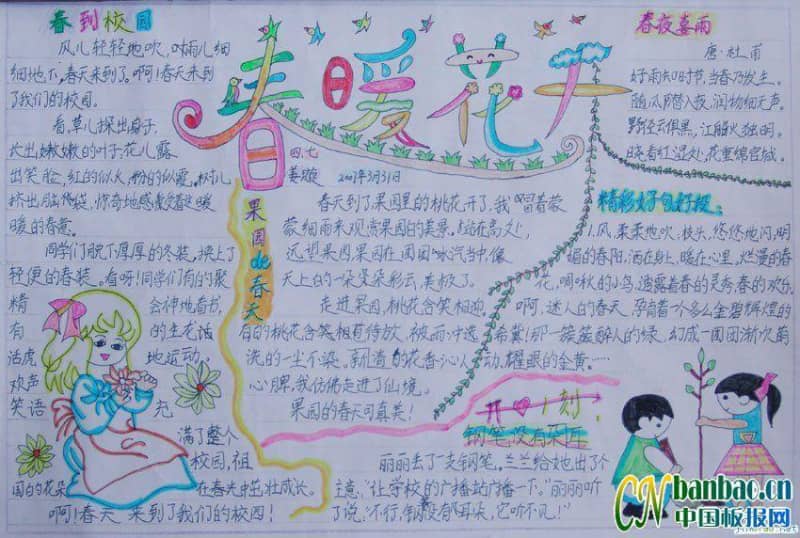 春到校园
风儿轻轻地吹，吹雨儿细
细地下，春天来到了。啊！春天来到
了我们的校园。
看，草儿探出身子，
长出嫩嫩的叶子，花儿露
出笑脸，红的似火，粉的似霞。树儿
挤出脑袋，惊奇地感受着暖
暖的春意。
同学们脱下厚厚的冬装，换上了
轻便的春装。看呀！同学们有的聚
精会神地看书，
有的生花
活虎地运动。
欢声
笑语充
满了整个
校园，祖
国的花朵在春天中茁壮成长。
啊！春天来到了我们的校园！
春暖花开
四.七
2007年3月31日
果园de春天
春天到了，果园里的桃花开了，我冒着蒙
蒙细雨来观赏果园的美景。站在高处，
远望果园，果园在团团水汽当中，像
天上的一朵朵彩云，美极了。
走进果园，桃花含笑相迎，
有的桃花含笑，有待放，被雨冲
洗的一尘不染。花香沁人
心脾，我仿佛走进了仙境。
果园的春天可真美！
春夜喜雨
唐·杜甫
好雨知时节，当春乃发生。
随风潜入夜，润物细无声。
野径云俱黑，江船火独明。
晓看红湿处，花重锦官城。
精彩好句好段：
1.风，柔柔地吹，枝头，悠悠地闪，明
媚的春阳，洒在身上，暖在心里，烂漫的春
花，啁啾的小鸟，透露着春的灵秀，春的欢乐，
啊，迷人的春天，孕育着一个多么金碧辉煌的
希冀！那一簇簇醉人的绿，幻成一团团渐次萌
动，耀眼的金黄。……
开心1刻：
钢笔没有耳朵
丽丽丢了一支钢笔。兰兰给她出了个
主意，“让学校的广播站广播一下。”丽丽听
了说：“不行，钢笔没有耳朵，它听不见！”
CNbanbao.cn
中国板报网